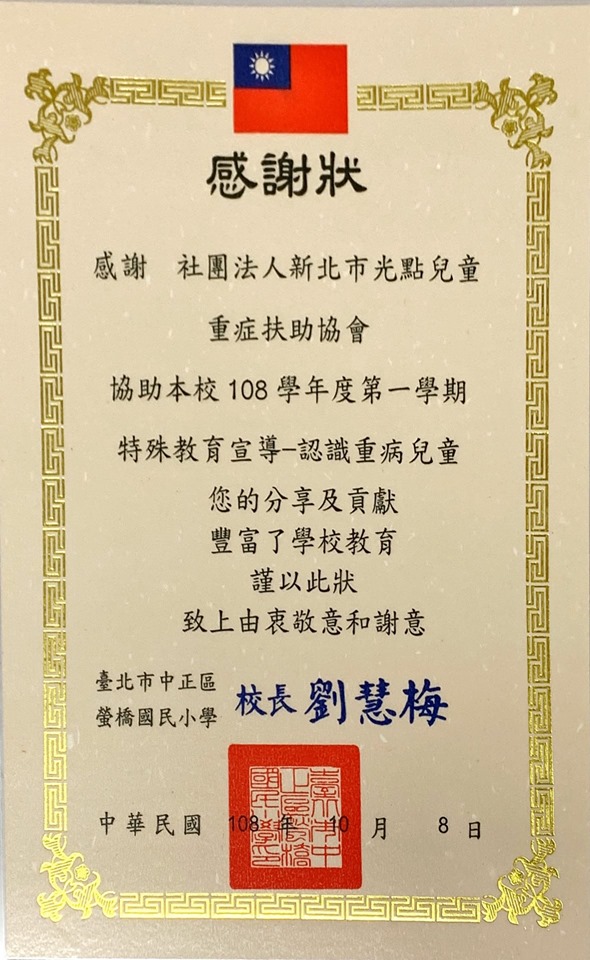 感謝狀
感謝　社團法人新北市光點兒童
重症扶助協會
協助本校 108 學年度第一學期
特殊教育宣導－認識重病兒童
您的分享及貢獻
豐富了學校教育
謹以此狀
致上由衷敬意和謝意
臺北市中正區
螢橋國民小學
校長 劉慧梅
中華民國 108 年 10 月 8 日